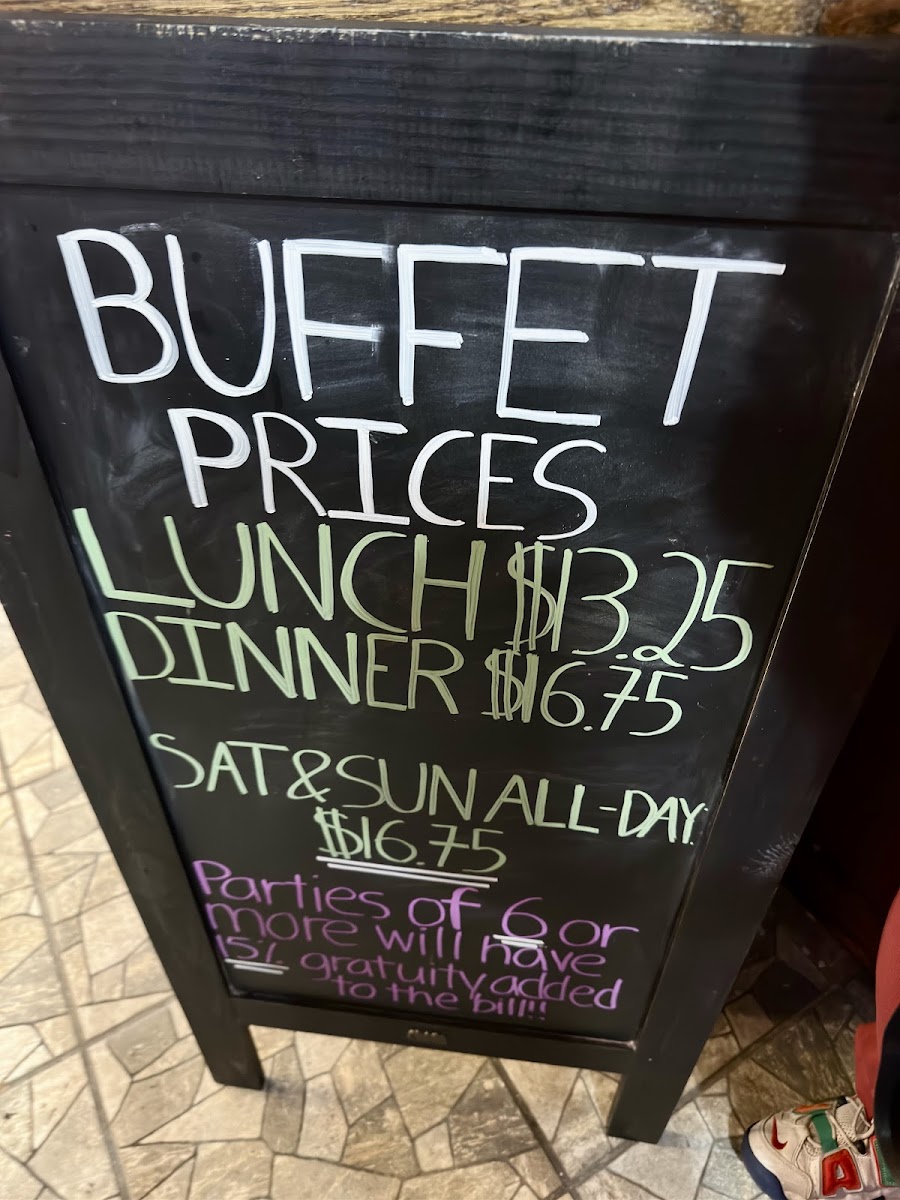 BUFFET
PRICES
LUNCH $13.25
DINNER $16.75
SAT & SUN ALL-DAY
$16.75
Parties of 6 or
more will have
15% gratuity added
to the bill!!